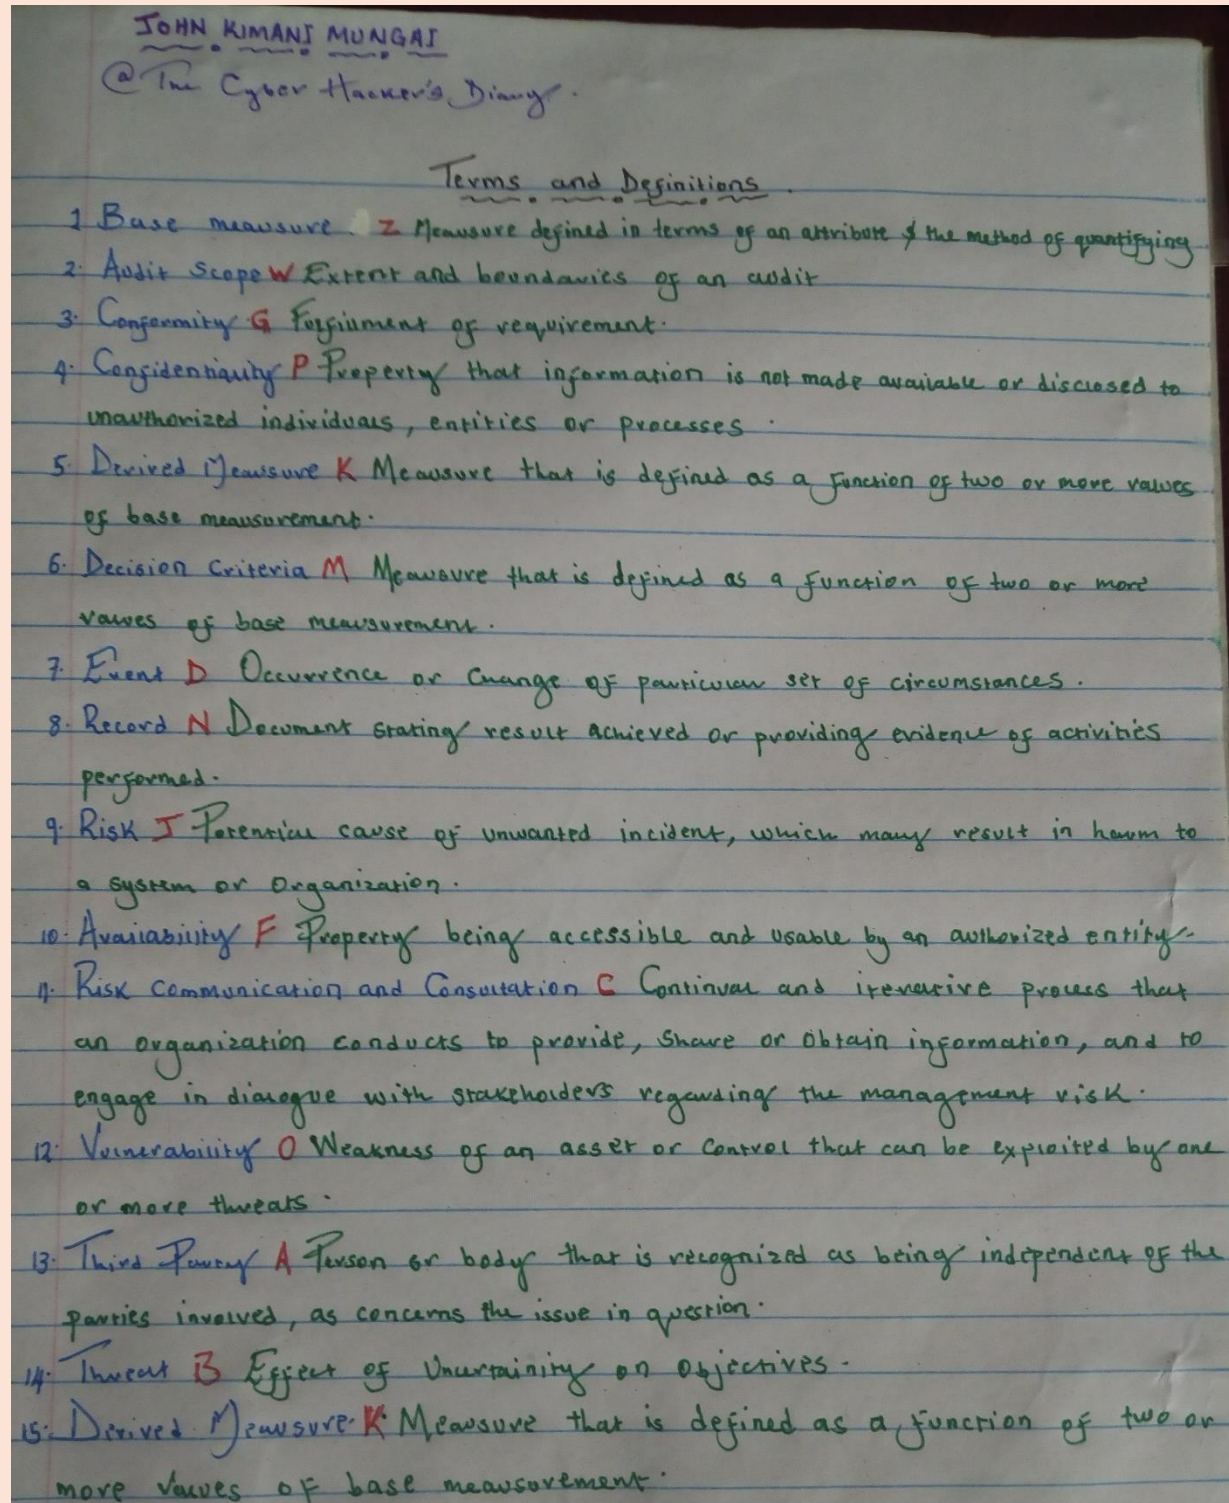 JOHN KIMANI MUNGAI
@ The Cyber Hacker's Diary.
Terms and Definitions.
1 Base measure. Z Measure defined in terms of an attribute & the method of quantifying
2. Audit Scope W Extent and boundaries of an audit
3. Conformity G Fulfilment of requirement.
4. Confidentiality P Property that information is not made available or disclosed to
unauthorized individuals, entities or processes.
5. Derived Measure K Measure that is defined as a function of two or more values
of base measurement.
6. Decision Criteria M Measure that is defined as a function of two or more
values of base measurement.
7. Event D Occurrence or Change of particular set of circumstances.
8. Record N Document stating result achieved or providing evidence of activities
performed.
9. Risk J Potential cause of unwanted incident, which may result in harm to
a system or Organization.
10. Availability F Property being accessible and usable by an authorized entity.
11. Risk Communication and Consultation C Continual and iterative process that
an organization conducts to provide, share or obtain information, and to
engage in dialogue with stakeholders regarding the management risk.
12. Vulnerability O Weakness of an asset or control that can be exploited by one
or more threats.
13. Third Party A Person or body that is recognized as being independent of the
parties involved, as concerns the issue in question.
14. Threat B Effect of Uncertainity on objectives.
15. Derived Measure. K Measure that is defined as a function of two or
more values of base measurement.